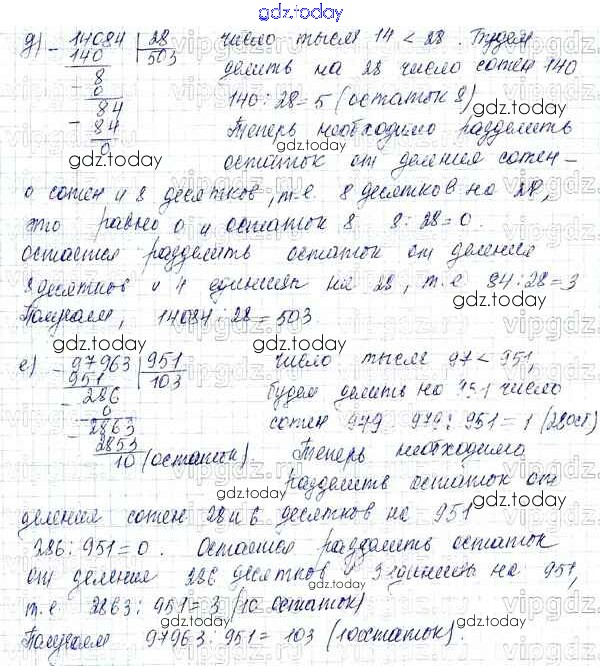 gdz.today
д) 14084 | 28 число тысяч 14 < 28. Будем
140 503 делить на 28 число сотен 140
8
0 140 : 28 = 5 (остаток 0)
84 Теперь необходимо разделить
84
0 остаток от деления сотен –
0 сотен и 8 десятков, т.е. 8 десятков на 28,
это равно 0 и остаток 8 8 : 28 = 0.
остается разделить остаток от деления
8 десятков и 4 единицы на 28, т.е. 84 : 28 = 3
Получаем, 14084 : 28 = 503.
е) 97963 | 951 число тысяч 97 < 951,
951 103 будем делить на 951 число
286
0 сотен 979. 979 : 951 = 1 (28 ост)
2863
2853 Теперь необходимо
10 (остаток). разделить остаток от
деления сотен 28 и 6 десятков на 951
286 : 951 = 0. Остается разделить остаток
от деления 286 десятков и 3 единицы на 951,
т.е. 2863 : 951 = 3 (10 остаток)
Получаем 97963 : 951 = 103 (10 остаток).
gdz.today